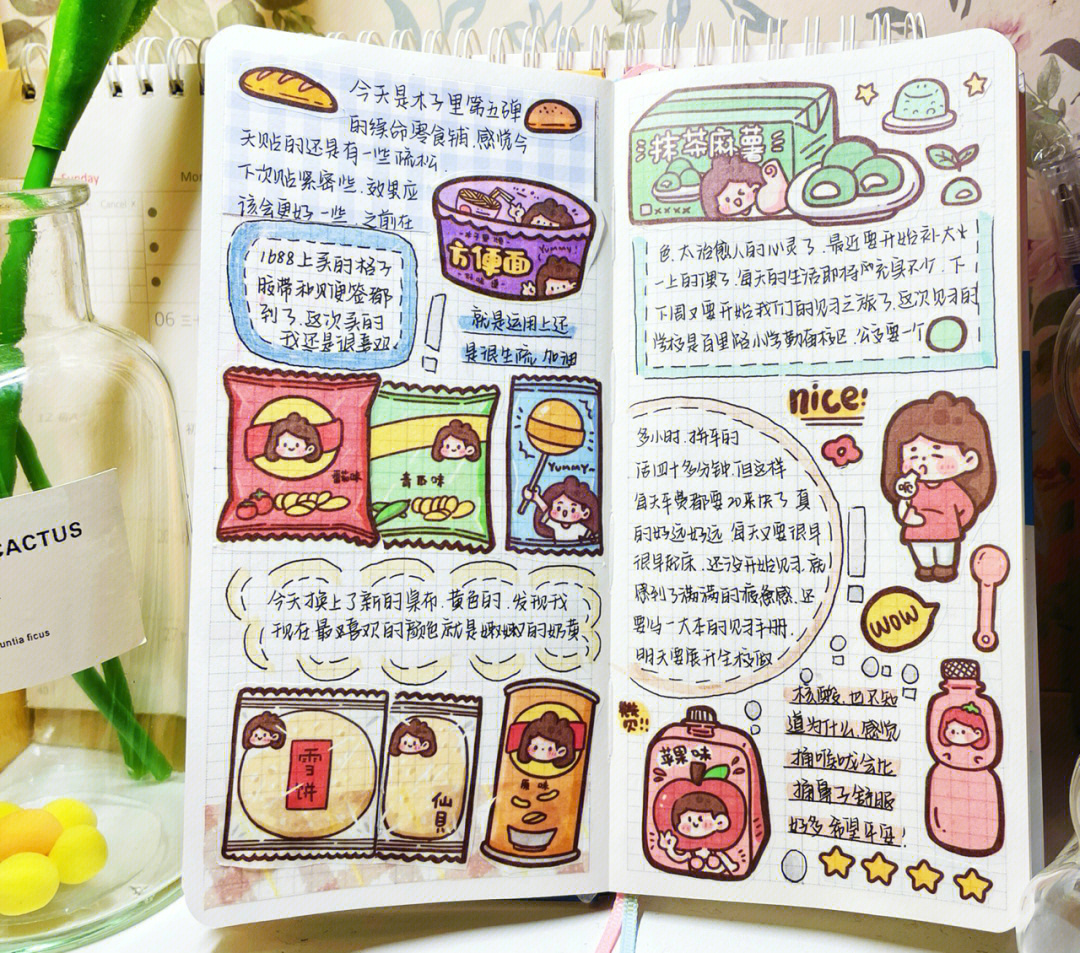 今天是木子里第五弹
的续命零食铺.感觉今
天贴的还是有一些疏松.
下次贴紧密些.效果应
该会更好一些 之前在
1688上买的格子
胶带和便签都
到了.这次买的
我还是很喜欢
方便面
YUMMY!
就是运用上还
是很生疏 加油
番茄味
青瓜味
YUMMY~
今天换上了新的桌布.黄色的.发现我
现在最喜欢的颜色就是嫩嫩的奶黄
雪饼
仙贝
原味
抹茶麻薯
xxxx
色.太治愈人的心灵了.最近要开始补大
一上的课了.每天的生活即将充实不少.下
下周又要开始我们的见习之旅了.这次见习的
学校是百里路小学勤苗校区.公交要一个
nice!
多小时.拼车的
话四十多分钟.但这样
每天车费都要20来快了 真
的好远好远 每天又要很早
很早起床.还没开始见习.就
感到了满满的疲惫感.还
要写一大本的见习手册.
明天要展开全校做
WOW
核酸.也不知
道为什么.感觉
捅喉咙会比
捅鼻子舒服
好多 希望平安!
苹果味
CACTUS
untia ficus
Sunday
Mon
06